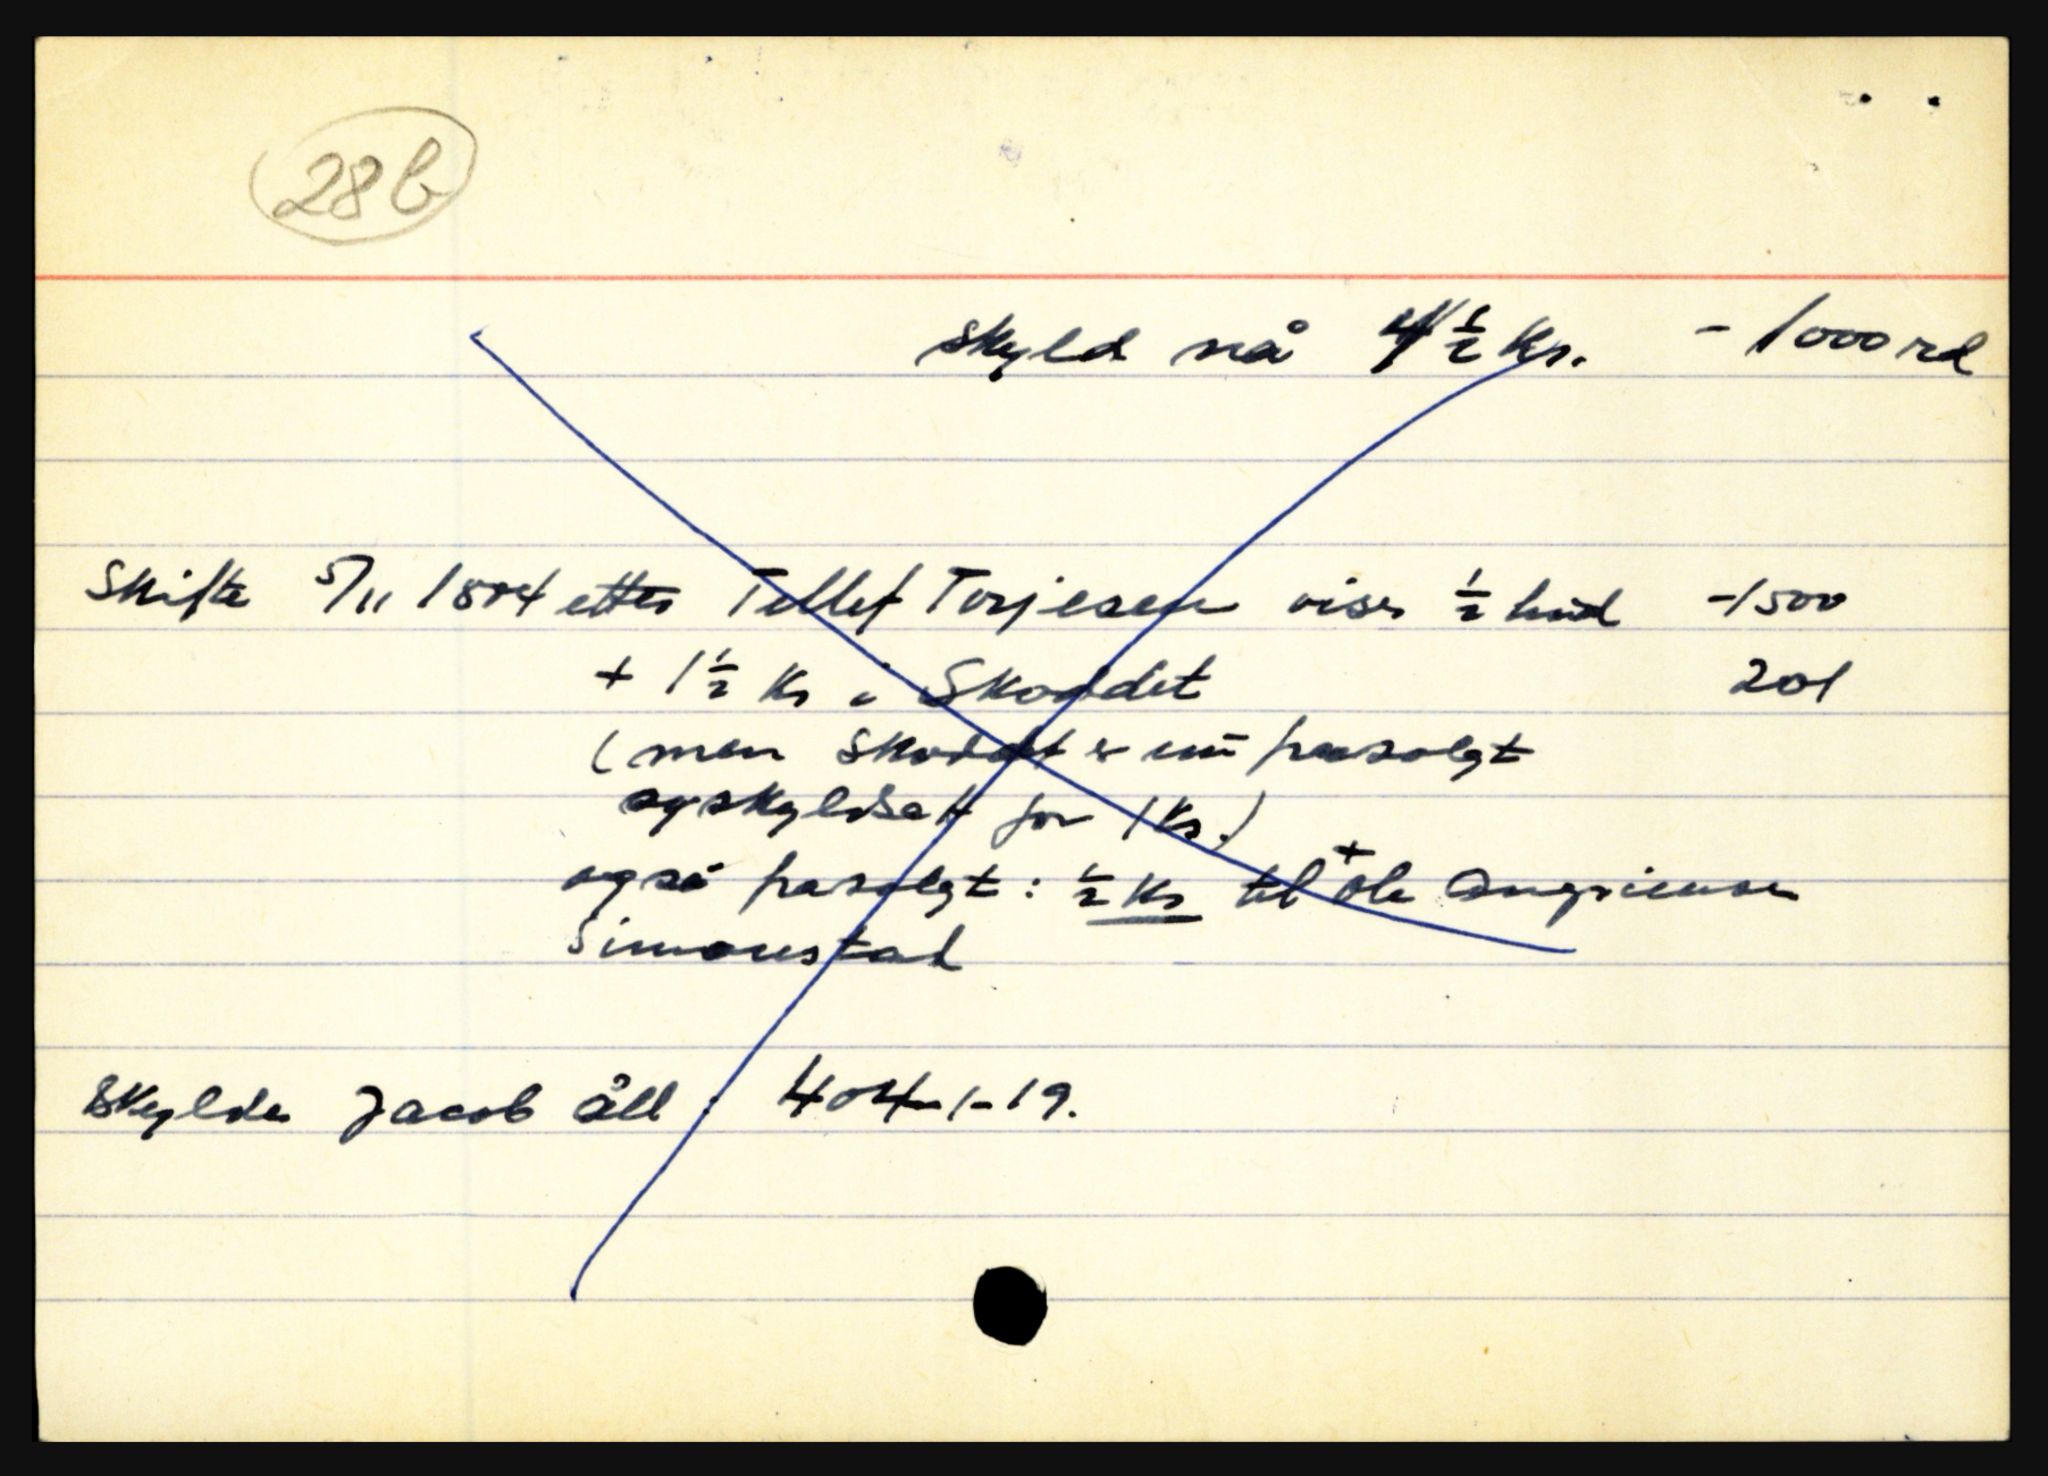 28b
Skyld nå 4 1/2 Ks. - 1000 rd
Skifte 5/11 1804 etter Tellef Torjesen viser 1/2 hud -1500
+ 1 1/2 Ks i Skoddet 201
(men Skoddet er nu frasolgt
og skyldsatt for 1 Ks.)
også frasolgt: 1/2 Ks til + Ole
Simonstad
Skylder Jacob Åll : 404-1-19.